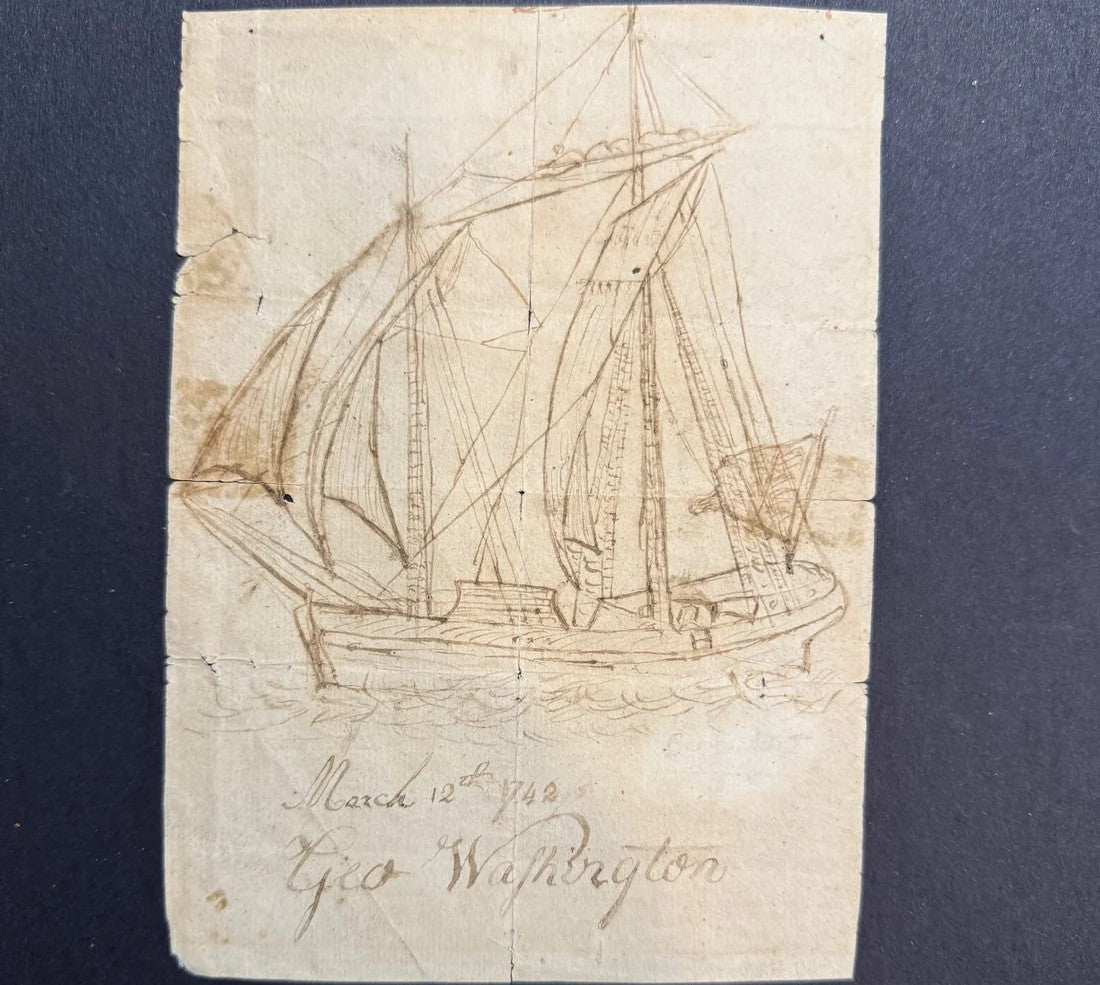 March 12th 1742
Geo Waſhington